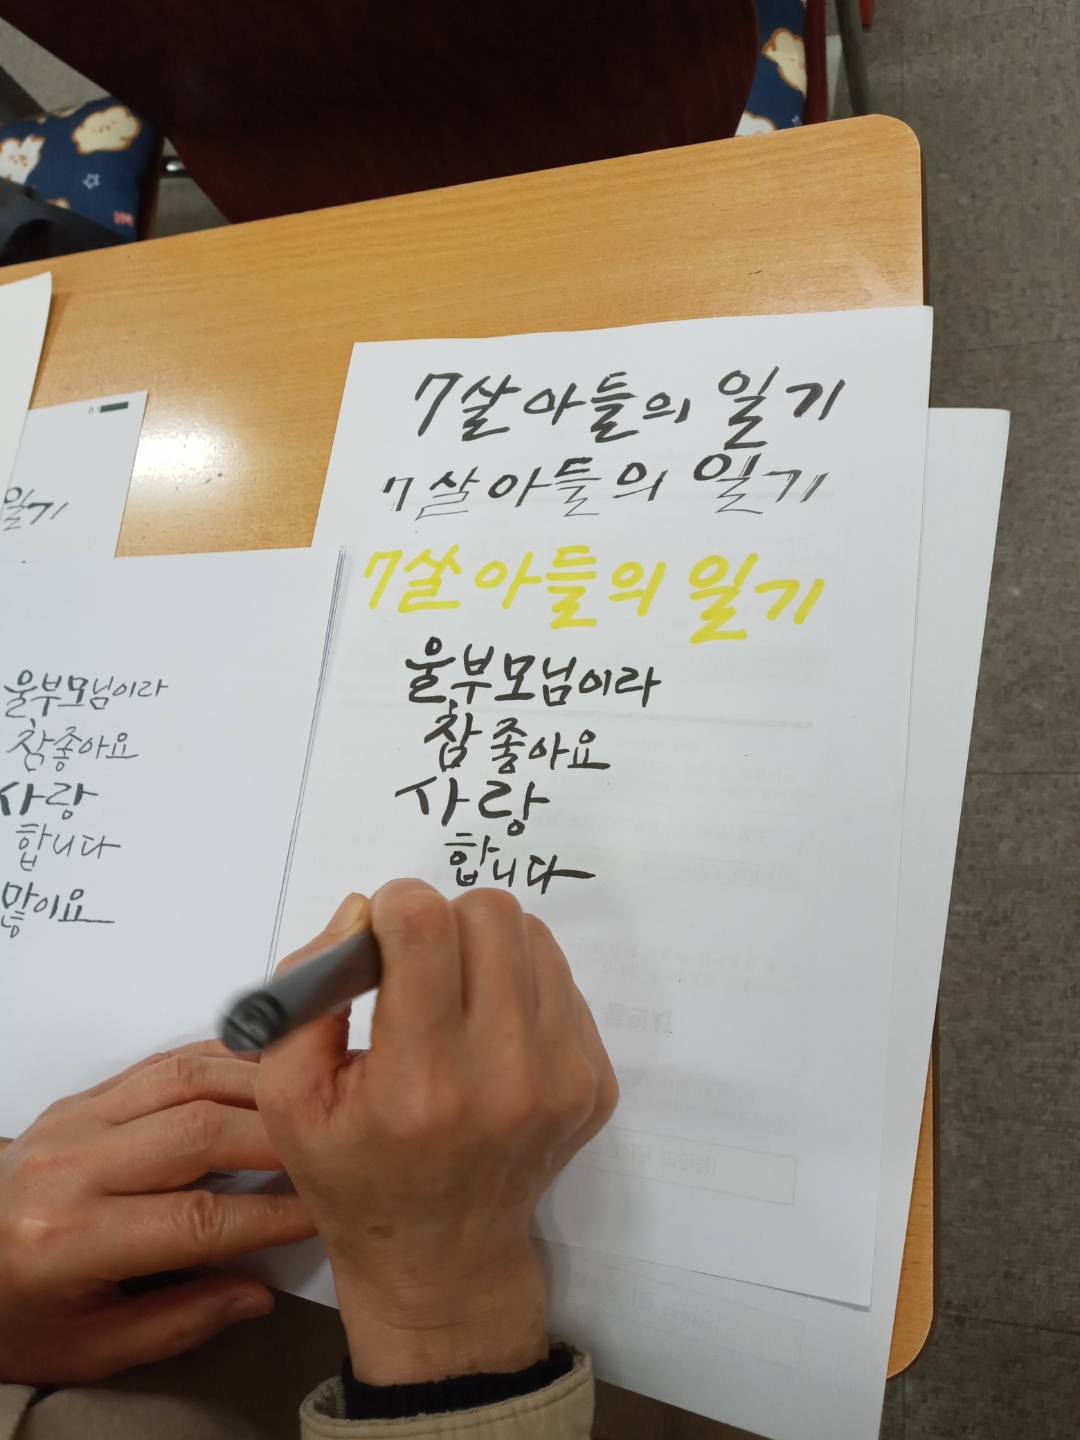 일기
울부모님이라
참좋아요
사랑
합니다
많이요
7살아들의 일기
7살아들의 일기
7살아들의 일기
울부모님이라
참 좋아요
사랑
합니다